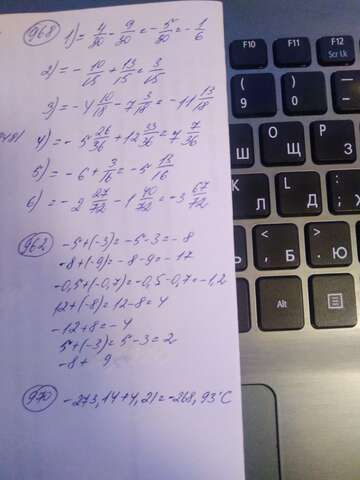 968 1) = 4/30 - 9/30 = - 5/30 = - 1/6
2) = - 10/15 + 13/15 = 3/15
3) = - 4 10/18 - 7 3/18 = - 11 13/18
4) = - 5 26/36 + 12 33/36 = 7 7/36
5) = - 6 + 3/16 = - 5 13/16
6) = - 2 27/72 - 1 40/72 = - 3 67/72
962 -5+(-3)=-5-3=-8
-8+(-9)=-8-9=-17
-0,5+(-0,7)=-0,5-0,7=-1,2
12+(-8)=12-8=4
-12+8=-4
5+(-3)=5-3=2
-8+ 9
970 -273,14+4,21=-268,93°C
F10 F11 F12
Scr Lk
( 9 ) 0
Ш Щ
О Л Д
Ь Б Ю
Alt